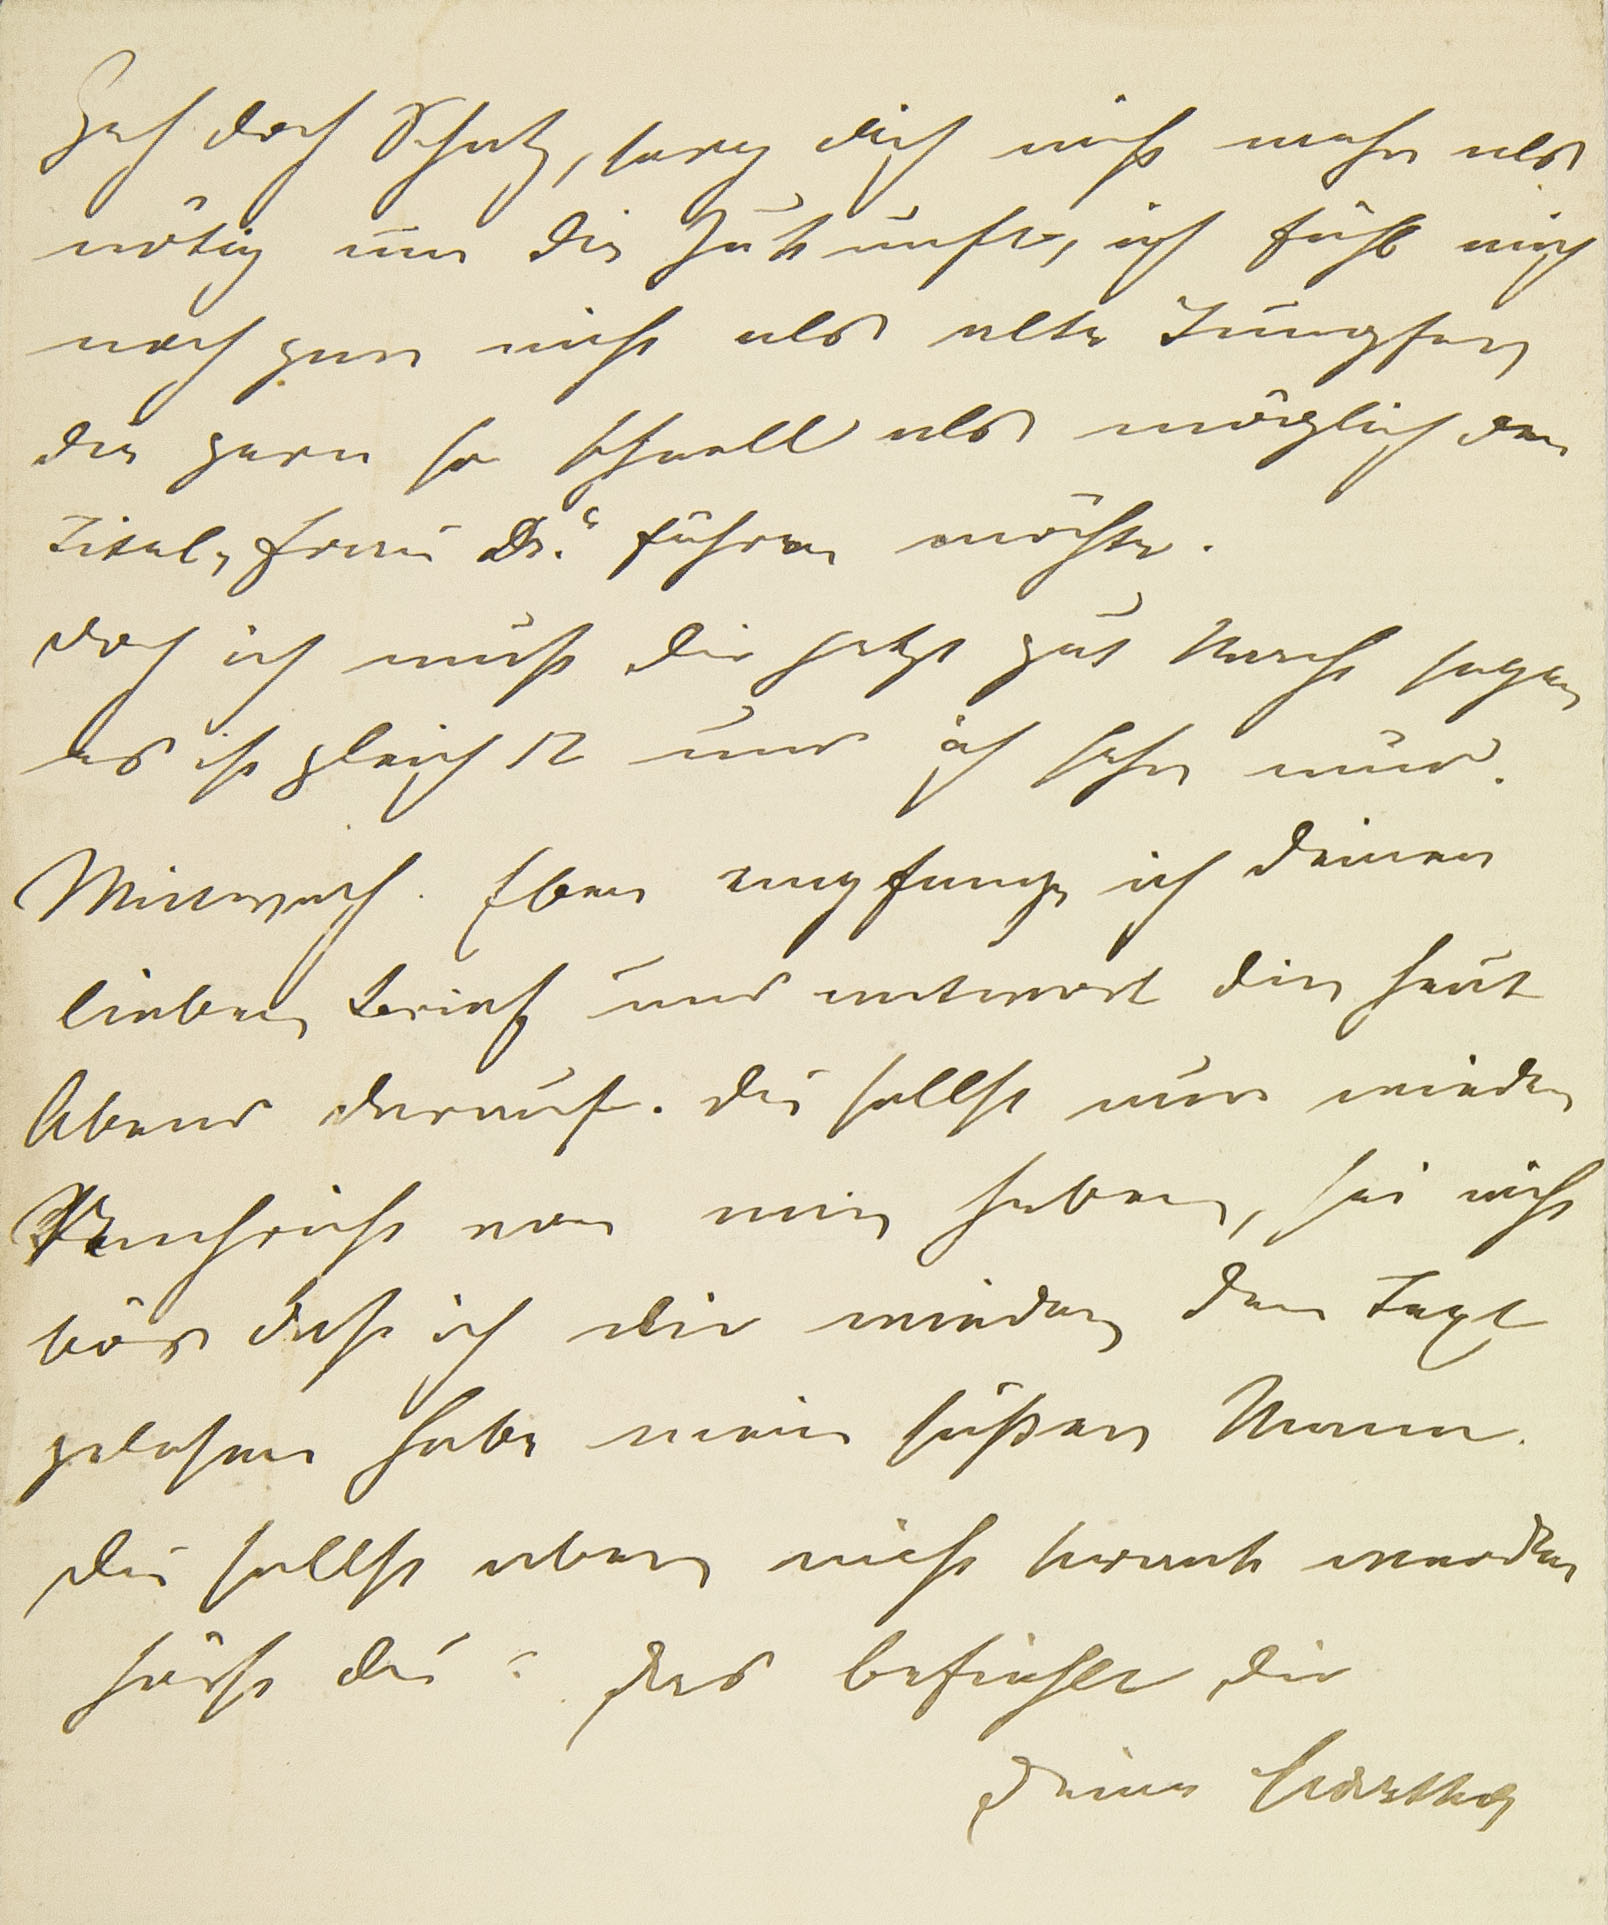 Geh doch Schatz, sorg dich nicht mehr als
nötig um die Zukunft, ich fühl mich
noch gar nicht als alte Jungfer
die gern so schnell als möglich den
Titel „Frau Dr.“ führen möchte.
Doch ich muß dir jetzt gut Nacht sagen
es ist gleich 12 und ich sehr müd.
Mittwoch. Eben empfange ich deinen
lieben Brief und antwort dir heut
Abend darauf. Du sollst nur wieder
Nachricht von mir haben, sei nicht
bös daß ich dir wieder den Text
gelesen habe mein süßer Mann.
Du sollst aber nicht krank werden
hörst du? Das befiehlt dir
Deine